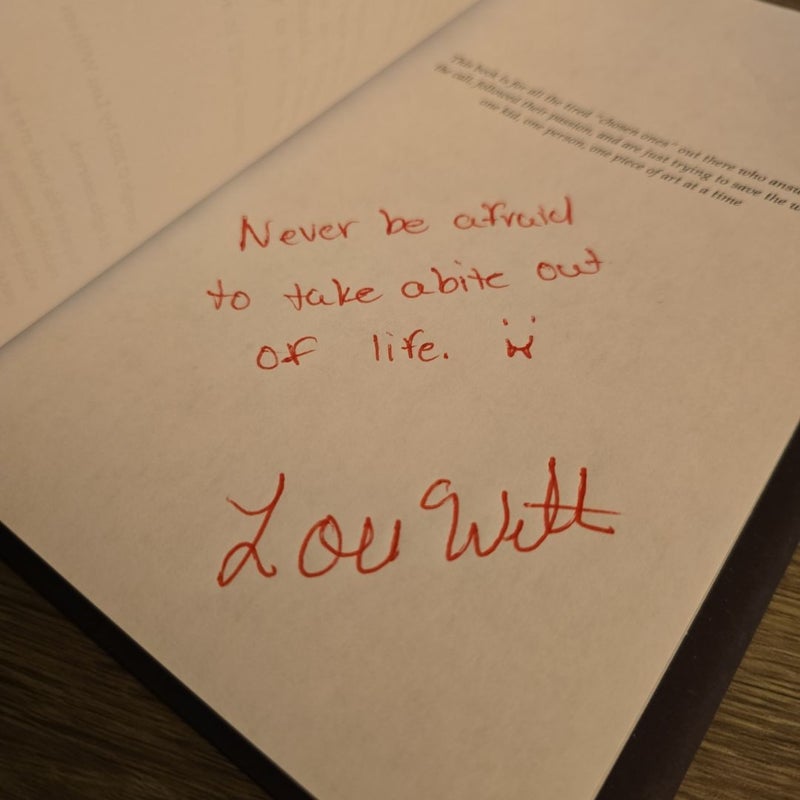 This book is for all the tired "chosen ones" out there who answ
the call, followed their passion, and are just trying to save the w
one kid, one person, one piece of art at a time
Never be afraid
to take a bite out
of life.
Lou Witt